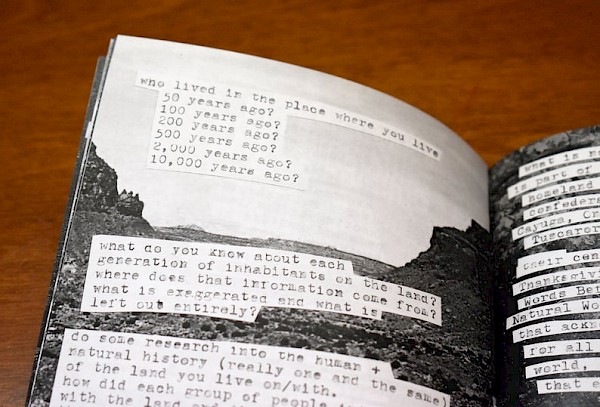 who lived in the place where you live
50 years ago?
100 years ago?
200 years ago?
500 years ago?
2,000 years ago?
10,000 years ago?
what do you know about each
generation of inhabitants on the land?
where does that information come from?
what is exaggerated and what is
left out entirely?
do some research into the human +
natural history (really one and the same)
of the land you live on/with.
how did each group of people
with the land and
what is
is part of
homeland
confedera
Cayuga, On
Tuscaror
their cen
Thanksgivi
Words Bef
Natural Wo
that ackn
for all
world,
that e